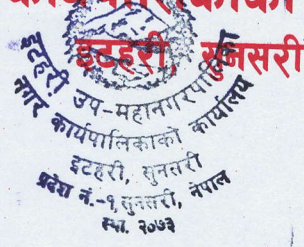 इटहरी, सुनसरी
इटहरी उप-महानगरपालिका
नगर कार्यपालिकाको कार्यालय
इटहरी, सुनसरी
प्रदेश नं.-१, सुनसरी, नेपाल
स्था. २०७३